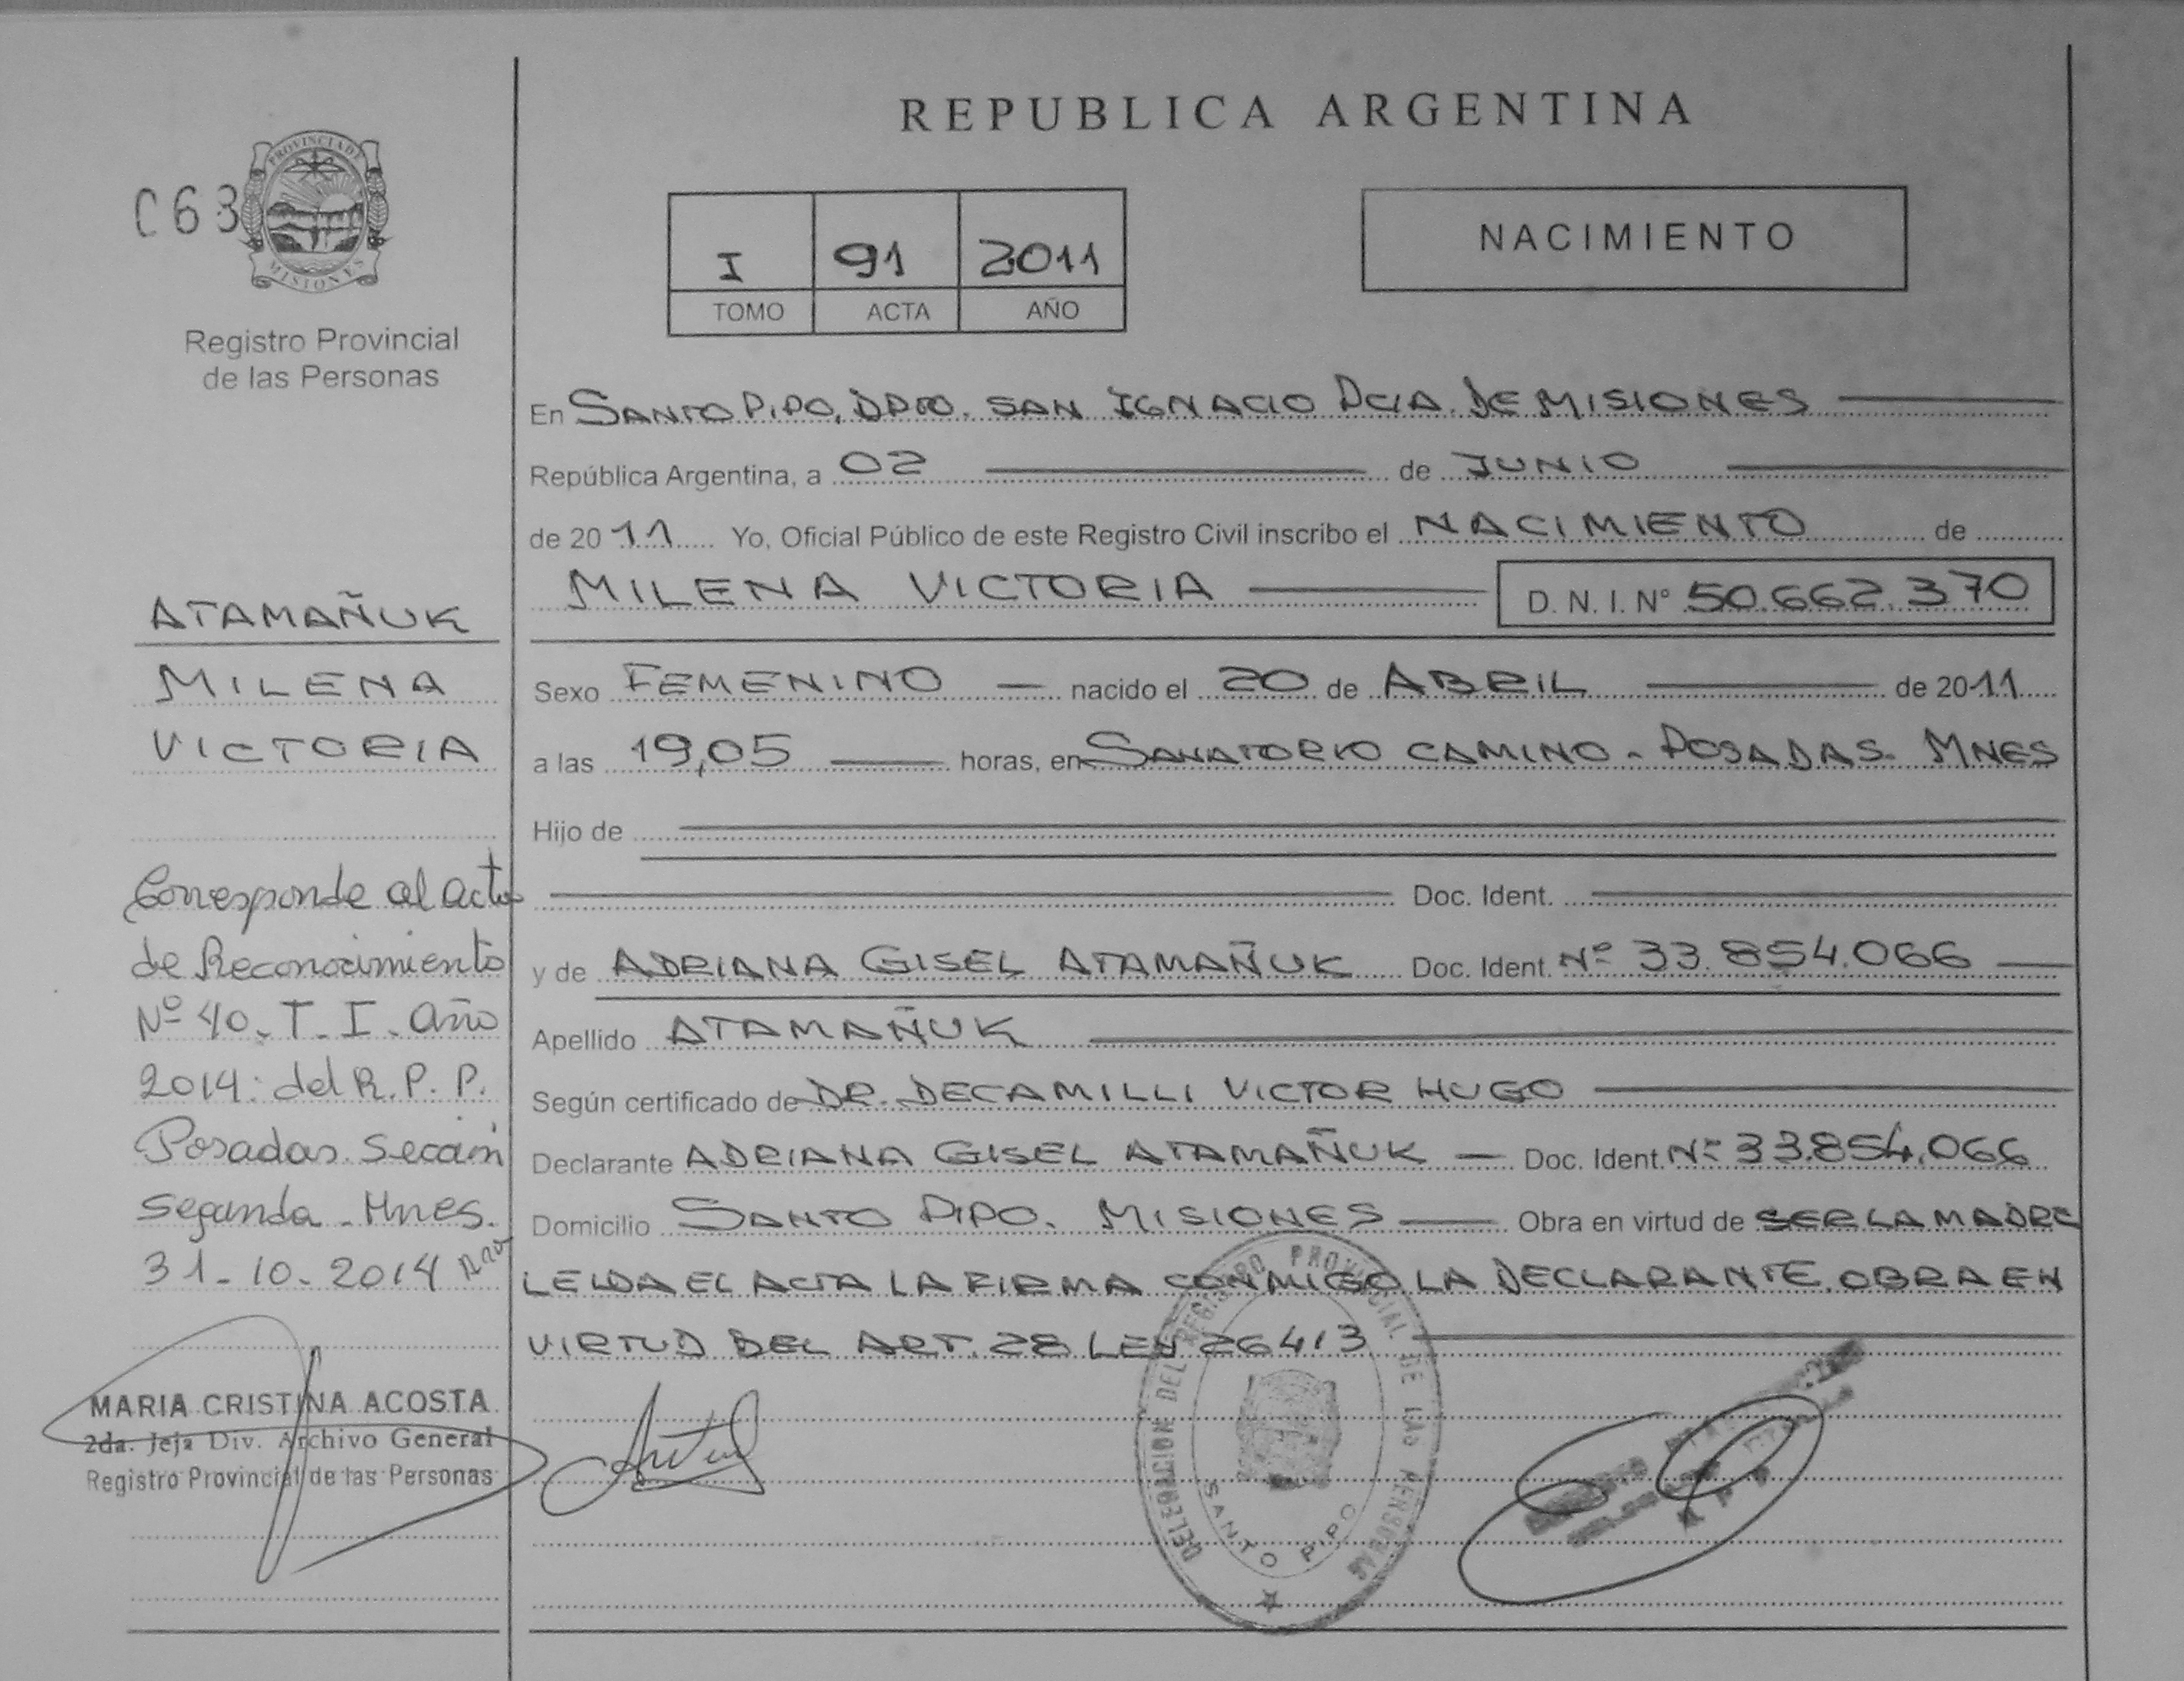 REPUBLICA ARGENTINA
C63
PROVINCIA DE
MISIONES
Registro Provincial
de las Personas
I 91 2011
TOMO ACTA AÑO
NACIMIENTO
En SANTO PIPO, DPTO. SAN IGNACIO PCIA. DE MISIONES
República Argentina, a 02 de JUNIO
de 2011 Yo, Oficial Público de este Registro Civil inscribo el NACIMIENTO de
MILENA VICTORIA D. N. I. Nº 50.662.370
Sexo FEMENINO nacido el 20 de ABRIL de 2011
a las 19,05 horas, en SANATORIO CAMINO - POSADAS. MNES
Hijo de
Doc. Ident.
y de ADRIANA GISEL ATAMAÑUK Doc. Ident. Nº 33.854.066
Apellido ATAMAÑUK
Según certificado de DR. DECAMILLI VICTOR HUGO
Declarante ADRIANA GISEL ATAMAÑUK Doc. Ident. Nº 33.854.066
Domicilio SANTO PIPO. MISIONES Obra en virtud de SER LA MADRE
LEIDA EL ACTA LA FIRMA CONMIGO LA DECLARANTE. OBRA EN
VIRTUD DEL ART. 28 LEY 26413
ATAMAÑUK
MILENA
VICTORIA
Corresponde al acta
de Reconocimiento
Nº 40. T. I. año
2014. del R. P. P.
Posadas. Sección
Segunda - Mnes.
31-10-2014
MARIA CRISTINA ACOSTA
2da. Jefa Div. Archivo General
Registro Provincial de las Personas
DELEGACION DEL REGISTRO PROVINCIAL DE LAS PERSONAS
SANTO PIPO